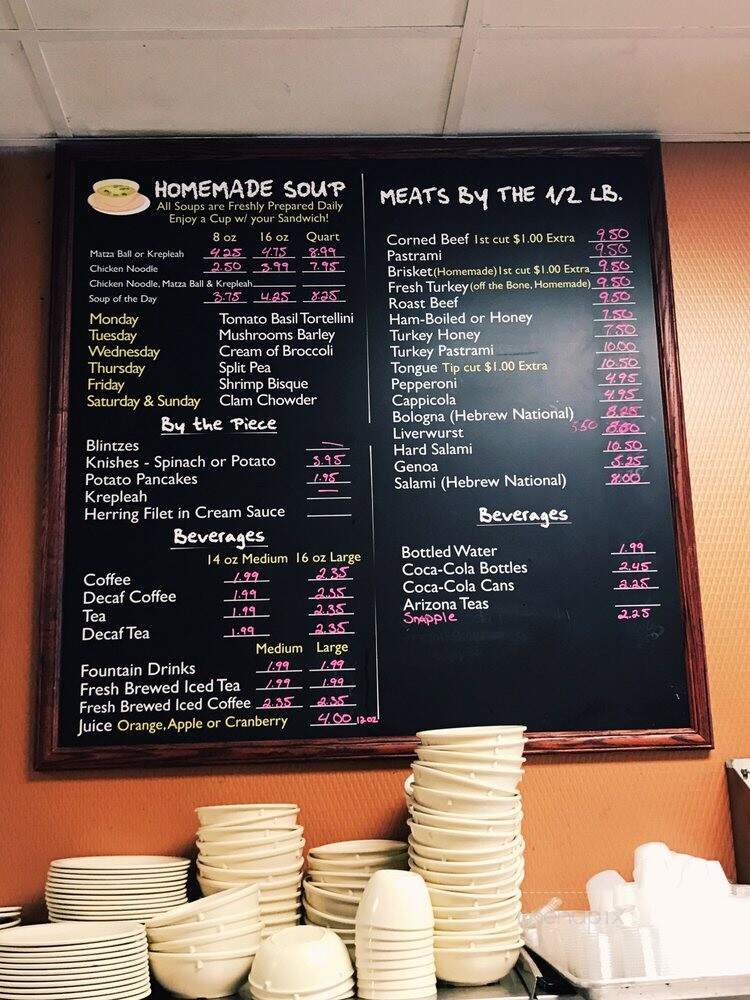 HOMEMADE SOUP
All Soups are Freshly Prepared Daily
Enjoy a Cup w/ your Sandwich!
8 oz 16 oz Quart
Matza Ball or Krepleah 4.25 4.75 8.99
Chicken Noodle 2.50 3.99 7.95
Chicken Noodle, Matza Ball & Krepleah
Soup of the Day 3.75 4.25 8.25
Monday Tomato Basil Tortellini
Tuesday Mushrooms Barley
Wednesday Cream of Broccoli
Thursday Split Pea
Friday Shrimp Bisque
Saturday & Sunday Clam Chowder
By the Piece
Blintzes
Knishes - Spinach or Potato 3.95
Potato Pancakes 1.95
Krepleah
Herring Filet in Cream Sauce
Beverages
14 oz Medium 16 oz Large
Coffee 1.99 2.35
Decaf Coffee 1.99 2.35
Tea 1.99 2.35
Decaf Tea 1.99 2.35
Medium Large
Fountain Drinks 1.99 1.99
Fresh Brewed Iced Tea 1.99 1.99
Fresh Brewed Iced Coffee 2.35 2.35
Juice Orange, Apple or Cranberry 4.00 12oz
MEATS BY THE 1/2 LB.
Corned Beef 1st cut $1.00 Extra 9.50
Pastrami 9.50
Brisket (Homemade) 1st cut $1.00 Extra 9.50
Fresh Turkey (off the Bone, Homemade) 9.50
Roast Beef 9.50
Ham-Boiled or Honey 7.50
Turkey Honey 7.50
Turkey Pastrami 10.00
Tongue Tip cut $1.00 Extra 10.50
Pepperoni 4.95
Cappicola 4.95
Bologna (Hebrew National) 8.25
Liverwurst 5.50
Hard Salami 10.50
Genoa 5.25
Salami (Hebrew National) 8.00
Beverages
Bottled Water 1.99
Coca-Cola Bottles 2.45
Coca-Cola Cans 2.25
Arizona Teas
Snapple 2.25
menupix